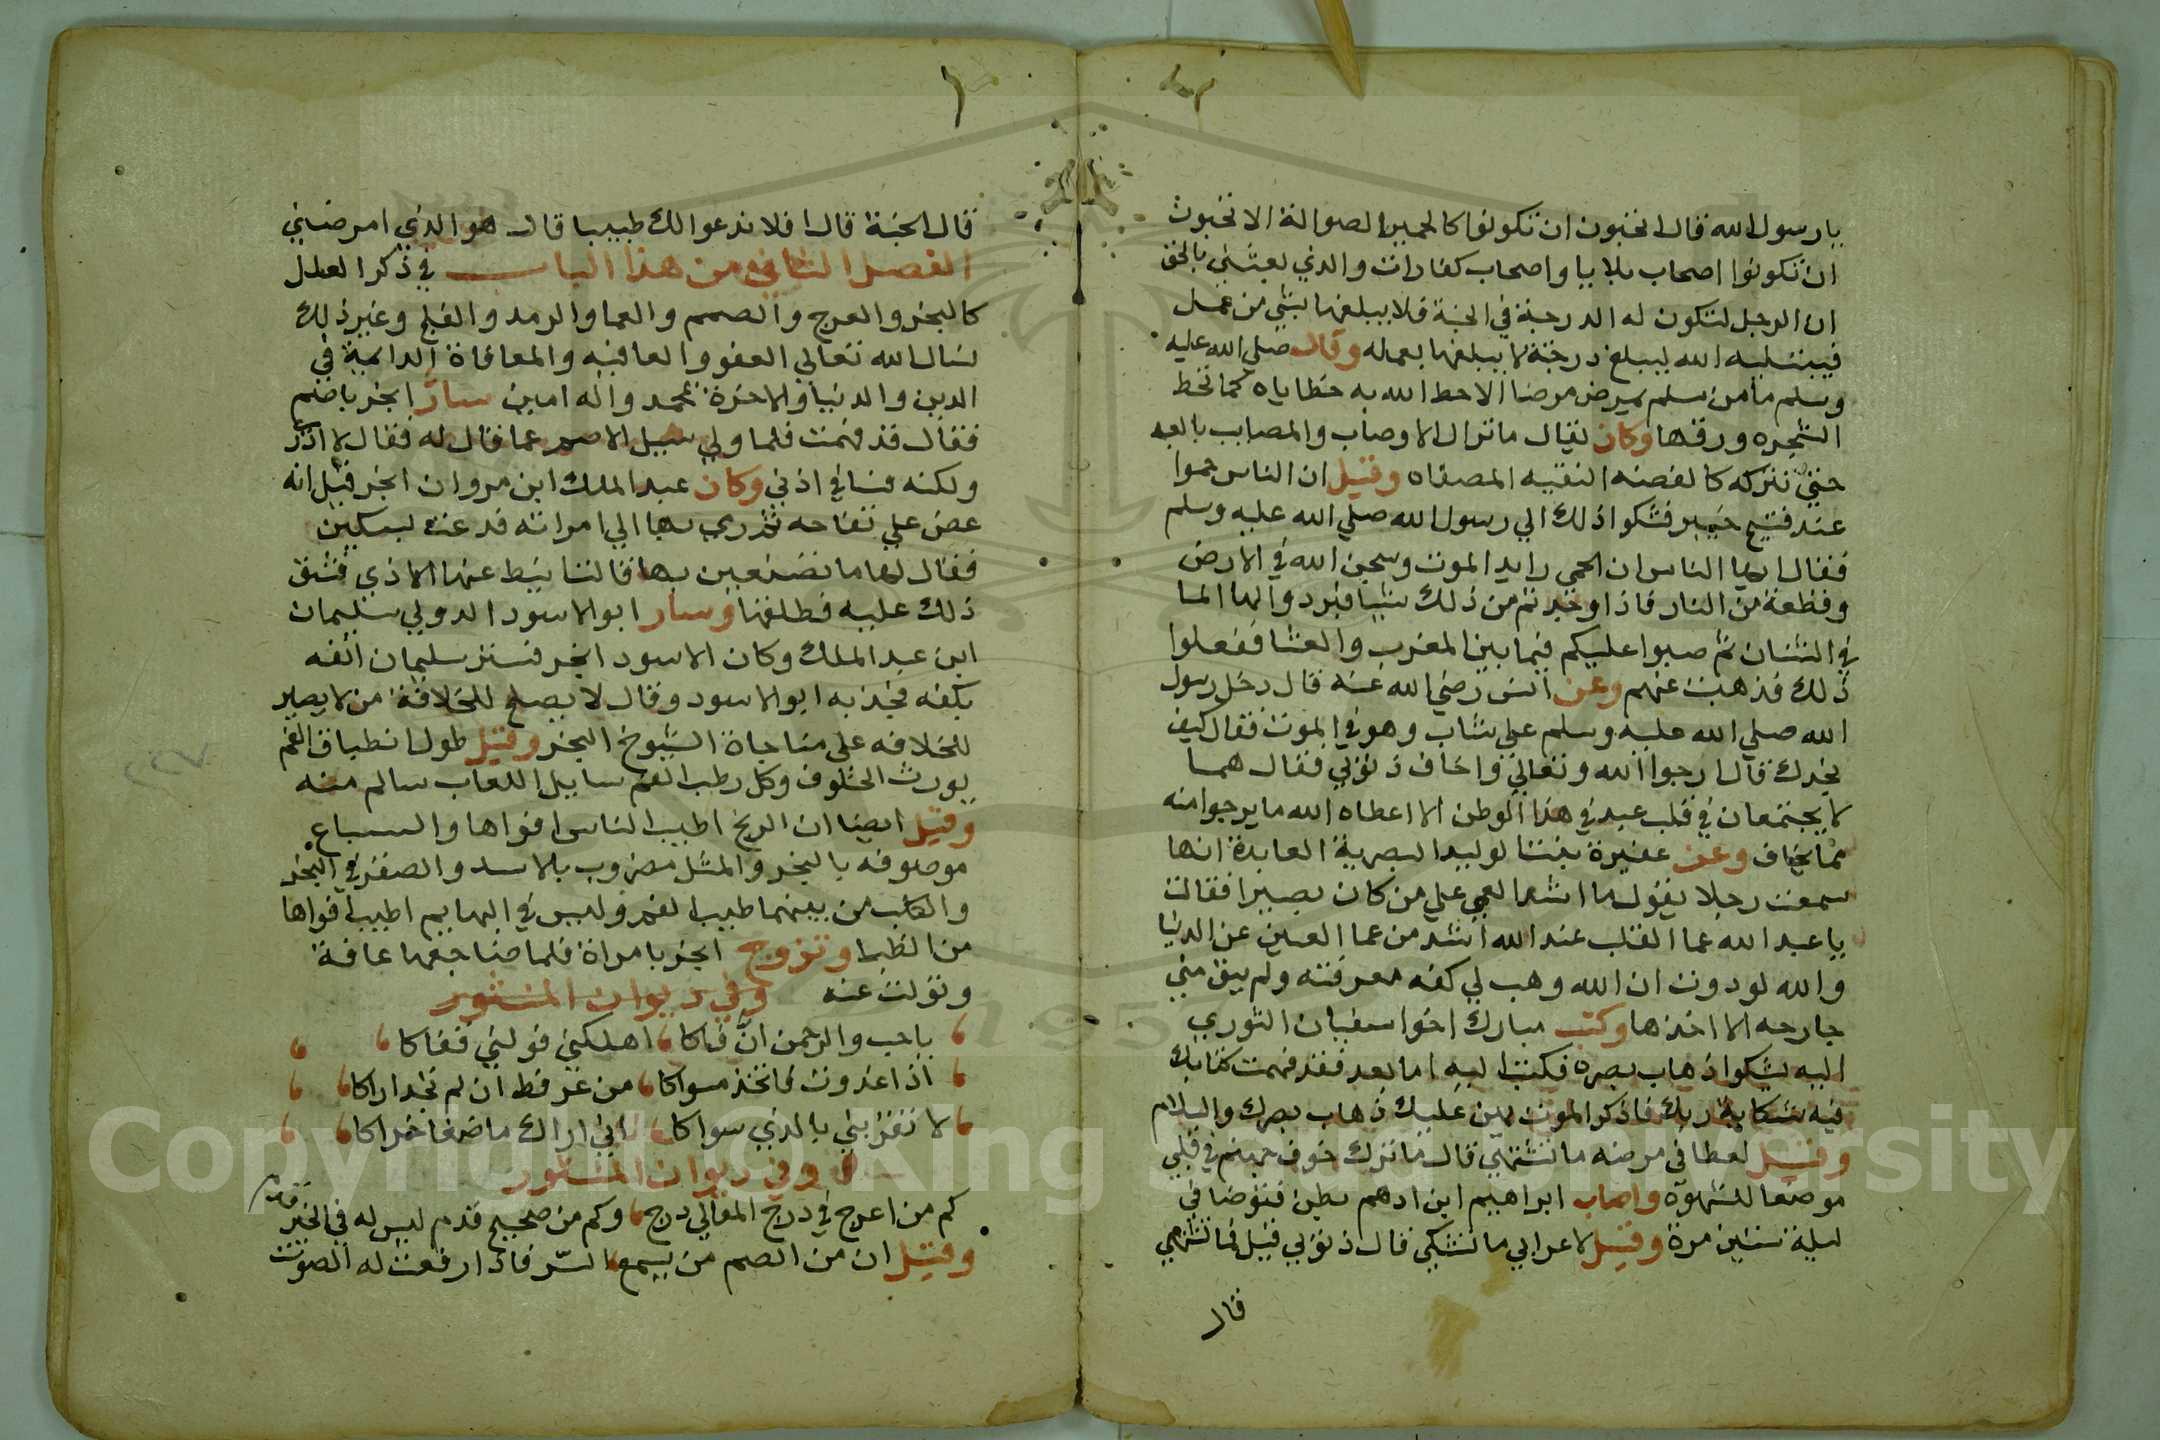 يا رسول الله قال اتحبون ان تكونوا كالحمير الصوالة الا تحبون
ان تكونوا اصحاب بلايا واصحاب كفارات والذي بعثني بالحق
ان الرجل لتكون له الدرجة في الجنة فلا يبلغها بشي من عمل
فيبتليه الله ليبلغ درجة لا يبلغها بعمله وقال صلي الله عليه
وسلم ما من مسلم يمرض مرضا الا حط الله به خطاياه كما تحط
الشجره ورقها وكان يقال ما تزال الاوصاب والمصايب بالعبد
حتي تتركه كالفضه النقيه المصفاه وقيل ان الناس حموا
عند فتيح خيبر فشكوا ذلك الي رسول الله صلي الله عليه وسلم
فقال ايها الناس ان الحمي رايد الموت وسجن الله في الارض
وقطعة من النار فاذا وجدتم من ذلك شيا فبردوا لها الما
في الشنان ثم صبوا عليكم فيما بين المغرب والعشا ففعلوا
ذلك فذهبت عنهم وعن انس رضي الله عنه قال دخل رسول
الله صلي الله عليه وسلم علي شاب وهو في الموت فقال كيف
تجدك قال ارجوا الله وتعالي واخاف ذنوبي فقال هما
لا يجتمعان في قلب عبد في هذا الوطن الا اعطاه الله ما يرجوا منه
مما يخاف وعن عفيرة بنت الوليد البصرية العابدة انها
سمعت رجلا يقول ما اشد العمي علي من كان بصيرا فقالت
يا عبد الله عما القلب عند الله اشد من عما العين عن الدنيا
والله لوددت ان الله وهب لي كفه معرفته ولم يبق مني
جارحه الا اخذها وكتب مبارك اخوا سفيان الثوري
اليه يشكوا ذهاب بصره فكتب اليه اما بعد فقد فهمت كتابك
فيه شكاية ربك فاذكر الموت يهن عليك ذهاب بصرك والسلام
وقيل لعطا في مرضه ما تشتهي قال ما ترك خوف جهنم في قلبي
موضعا للشهوة واصاب ابراهيم ابن ادهم بطن فتوضا في
ليلة ستين مرة وقيل لاعرابي ما تشتكي قال ذنوبي قيل فما تشتهي
قال
قال الجنة قال افلا ندعوا لك طبيبا قال هو الذي امرضني
الفصل الثاني من هذا الباب في ذكر العلل
كالبخر والعرج والصمم والعما والرمد والفلج وغير ذلك
نسال الله تعالي العفو والعافيه والمعافاة الدايمة في
الدين والدنيا والاخرة بمحمد واله امين سارّ ابخر باصم
فقال قد فهمت فلما ولي سيل الاصم عما قال له فقال لا ادر
ولكنه فسا في اذني وكان عبد الملك ابن مروان ابخر قيل انه
عض علي تفاحه ثم رمي بها الي امراته فدعت بسكين
فقال لها ما تصنعين بها قالت اميط عنها الاذي فشق
ذلك عليه فطلقها وسار ابو الاسود الدولي سليمان
ابن عبد الملك وكان الاسود ابخر فستر سليمان انفه
بكفه فجذبه ابو الاسود وقال لا يصلح للخلافة من لا يصبر
للخلافه على مناجاة الشيوخ البخر وقيل طول انطباق الفم
يورث الخلوف وكل رطب الفم سايل اللعاب سالم منه
وقيل ايضا ان الريخ اطيب الناس افواها والسباع
موصوفه بالبخر والمثل مضروب بالاسد والصقر في البخر
والكلب من بينهما طيب الفم وليس في البهايم اطيب افواها
من الظبا وتزوج ابخر بامراة فلما ضاجعها عافة
وتولت عنه وفي ديوان المنثور
يا حب والرحمن انّ فاكا اهلكني فولني قفاكا
اذا غدوت فاتخذ مسواكا من عرفط ان لم تجد اراكا
لا تقربني بالذي سواكا اني اراك ماضغا خراكا
وفي ديوان المنثور
كم من اعرج في درج المعالي درج وكم من صحيح قدم ليس له في الخير قدم
وقيل ان من الصم من يسمع السّر فاذا رفعت له الصوت